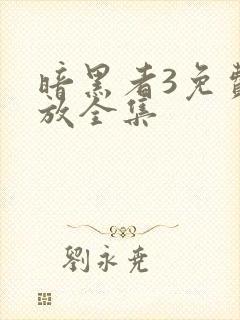 暗黑者3免費
放全集
劉永堯